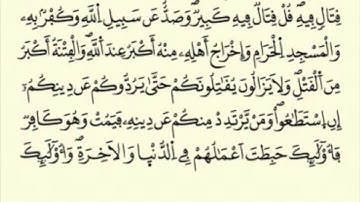 قِتَالٖ فِيهِۖ قُلْ قِتَالٞ فِيهِ كَبِيرٞۖ وَصَدٌّ عَن سَبِيلِ اِللَّهِ وَكُفْرُۢ بِهِۦ
وَالْمَسْجِدِ اِلْحَرَامِ وَإِخْرَاجُ أَهْلِهِۦ مِنْهُ أَكْبَرُ عِندَ اَللَّهِۖ وَالْفِتْنَةُ أَكْبَرُ
مِنَ اَلْقَتْلِۖ وَلَا يَزَالُونَ يُقَٰتِلُونَكُمْ حَتَّىٰ يَرُدُّوكُمْ عَن دِينِكُمُۥٓ
إِنِ اِسْتَطَٰعُواْۖ وَمَنْ يَّرْتَدِدْ مِنكُمْ عَن دِينِهِۦ فَيَمُتْ وَهُوَ كَافِرٞ
فَأُوْلَٰٓئِكَ حَبِطَتَ اَعْمَٰلُهُمْ فِے اِلدُّنْيَا وَالَاخِرَةِۖ وَأُوْلَٰٓئِكَ